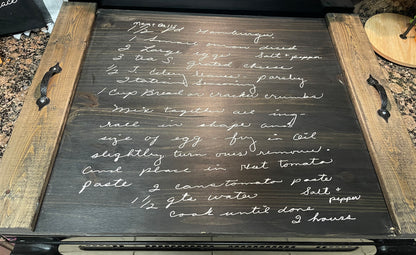 Meat Balls
1 1/2 lbs Hamburger
1 onion diced
2 Large Eggs Salt & pepper
3 tea S. grated cheese
1/2 t celery leaves parsley
1 Cup Bread or cracker crumbs
Mix together all ing-
roll in shape and
size of egg fry in Oil
slightly turn over remove.
And place in Hot tomato
paste 2 cans tomato paste
1 1/2 qts water Salt &
pepper
Cook until done
2 hours